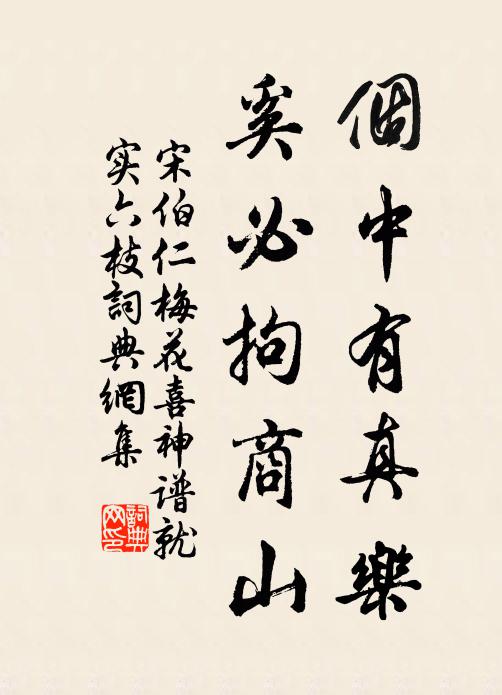 個中有真樂
奚必拘商山
宋伯仁梅花喜神谱就
实六枝詞典網集
詞典網印